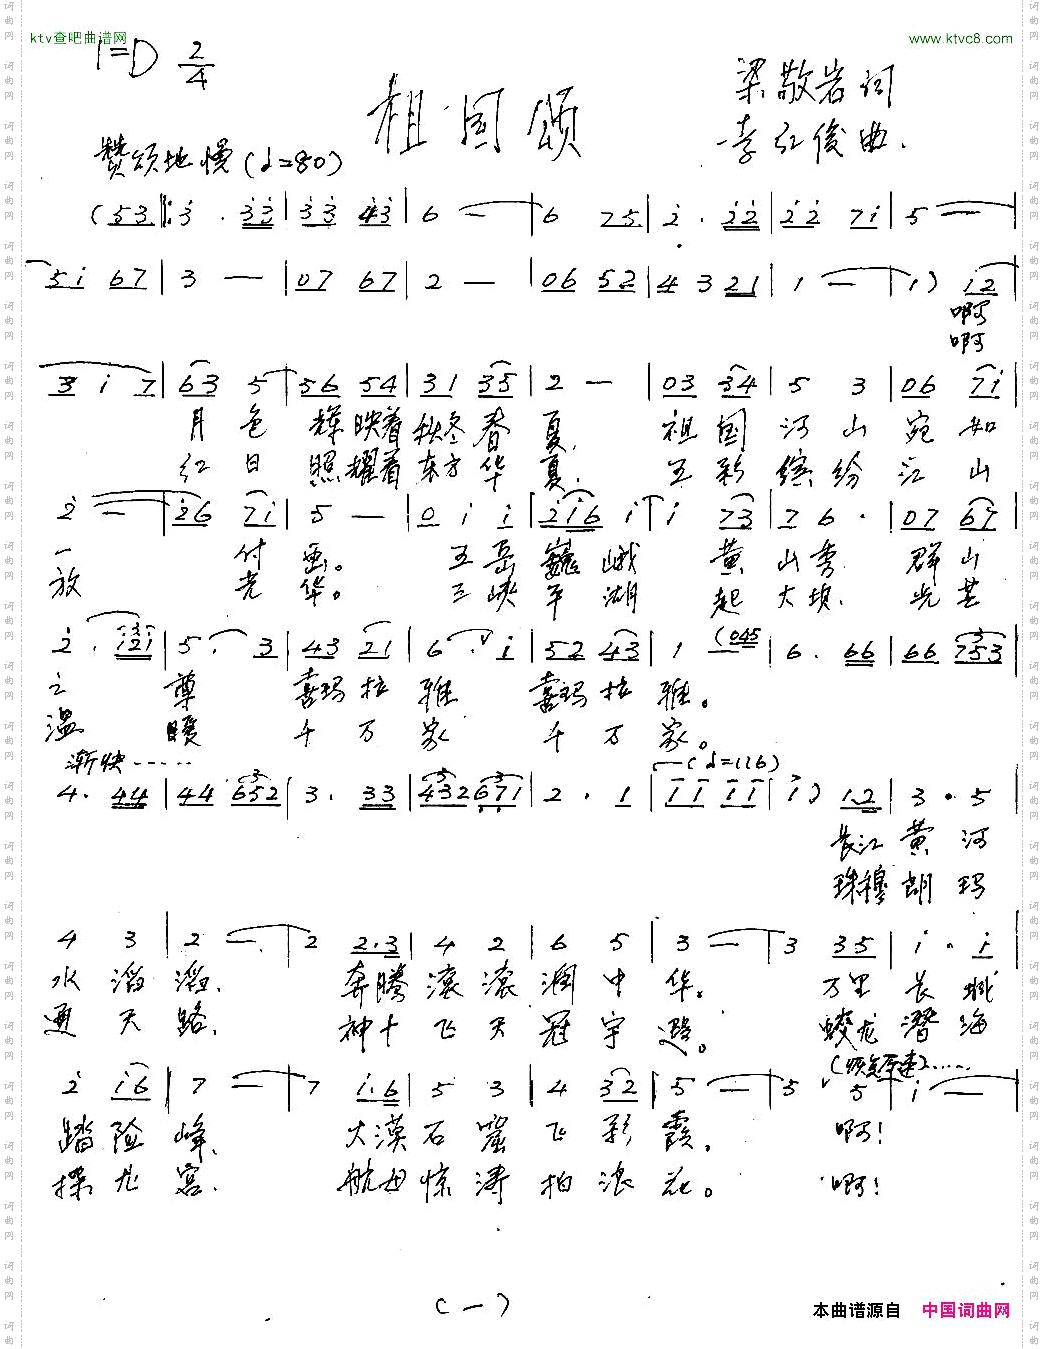 ktv查吧曲谱网
www.ktvc8.com
1=D 2/4
祖国颂
梁敬岩词
李红俊曲.
赞颂地慢(♩=80)
(53‖:3 . 33|33 43|6 — |6 75|2 . 22|22 71|5 — |
51 67|3 — |07 67|2 — |06 52|4 3 21|1 — |1) 12|
啊
啊
3 1 7|63 5|56 54|31 35|2 — |03 34|5 3|06 71|
月色 辉映着秋冬春夏, 祖国河山宛如
红日 照耀着东方华夏. 五彩缤纷江山
2 — |26 71|5 — |0 1 1|216 1|1 73|7 6 .|07 67|
一 付画。 五岳巍峨 黄山秀 群山
放 光华。 三峡平湖 起大坝. 光芒
2 . 121|5 . 3|43 21|6 . 1|52 43|1 (045|6 . 66|66 753|
之 尊 喜玛拉雅 喜玛拉雅。
温 暖 千万家 千万家。
渐快······
(♩=116)
4 . 44|44 652|3 . 33|432 671|2 . 1|11 11|1) 1.2|3 . 5|
长江黄河
珠穆朗玛
4 3|2 — |2 2.3|4 2|6 5|3 — |3 35|1 . 1|
水滔滔, 奔腾滚滚润中华。 万里长城
通天路, 神十飞天冠宇遨。 蛟龙潜海
2 16|7 — |7 1.6|5 3|4 32|5 — |5 5|1 — |
踏险峰, 大漠石窟飞彩霞, 啊!
探龙宫. 航母惊涛拍浪花。 啊!
(一)
本曲谱源自 中国词曲网
词曲网